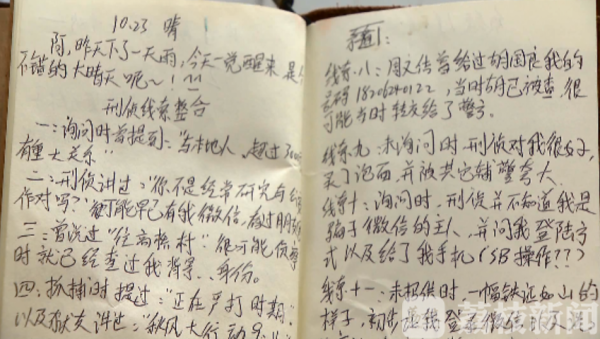 10.23 晴
阿,昨天下了一天雨,今天一觉醒来 是个
不错的大晴天呢~!
刑侦线索整合
一:询问时曾提到:"与本地人,超过
有重大关系"
二:刑侦讲过:"你不是经常研究与
作对写?"可能早已有我微信,
三:曾说过"往高栋村"很可能侦察
时就已经查过我背景、身份。
四:抓捕时提过:"正在严打时期",
以及狱友讲过:"秋风大行动
线索八:周文传曾给过胡国良我的
号码18206240122,当时胡已被查,很
可能当时转交给了警方
线索九:未询问时,刑侦对我很好,
买了泡面,并被其它辅警夸大
线索十:询问时,刑侦并不知道我是
骗子微信的主人,并问我登陆方
式以及给了我手机(SB操作??)
线索十一:未报供时,一幅铁证如山的
样子,初中 让我登录微信
荔枝新闻